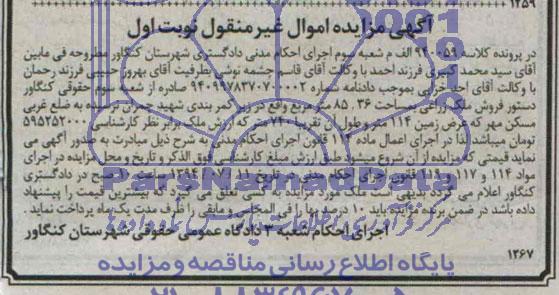 ۱۲۵۹
آگهی مزایده اموال غیر منقول نوبت اول
در پرونده کلاسه ۹۴۰۰۵۹ الف م شعبه سوم اجرای احکام مدنی دادگستری شهرستان کنگاور مطروحه فی مابین
آقای سید محمد کبیری فرزند احمد با وکالت آقای قاسم چشمه نوشی بطرفیت آقای بهروز حبیبی فرزند رحمان
با وکالت آقای احد خزایی بموجب دادنامه شماره صادره از شعبه سوم حقوقی کنگاور
دستور فروش ملک زراعی بمساحت ۸۵.۳۶ متر مربع واقع در زیر کمر بندی شهید به ضلع غربی
مسکن مهر که عرض زمین ۱۱۴ متر و طول آن تقریبا ۷۴۰ متر که ارزش ملک برابر نظر کارشناسی ۵۹۵۲۵۲۰۰۰
میباشد لذا در اجرای اعمال ماده ۱۱۴ قانون اجرای احکام مدنی به شرح ذیل مبادرت به صدور آگهی می
نماید قیمتی که مزایده از آن شروع میشود طبق ارزش مبلغ کارشناسی فوق الذکر و تاریخ و محل مزایده در اجرای
مواد ۱۱۴ و ۱۱۷ و قانون اجرای احکام مدنی در تاریخ ۱۱/۰۷/۱۳۹۴ ساعت ۱۰ صبح در دادگستری
کنگاور اعلام می گردد بدیهی است ملک مورد مزایده به کسی تعلق می گیرد که بیشترین قیمت را پیشنهاد
داده باشد در ضمن برنده مزایده باید ۱۰ درصد بها را فی المجلس و مابقی را ظرف مدت یک ماه پرداخت نماید.
اجرای احکام شعبه ۳ دادگاه عمومی حقوقی شهرستان کنگاور
۱۲۶۷
ParsNamadData
پایگاه اطلاع رسانی مناقصه و مزایده